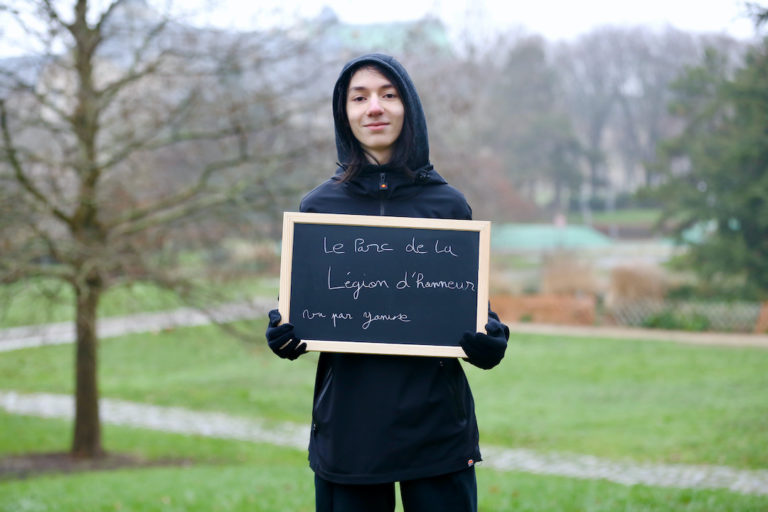 Le Parc de la
Légion d'honneur
vu par yanise